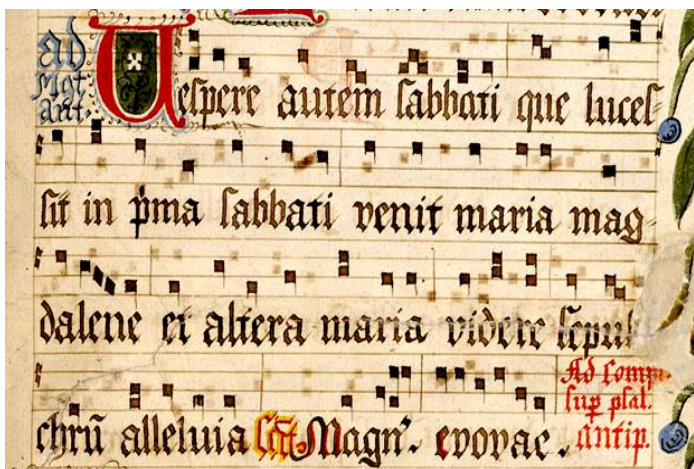 ad
Mgt
ant.
Uespere autem sabbati que luces
sit in p̄ma sabbati venit maria mag
dalene et altera maria videre sepul
chrū alleluia Magn̄. evovae.
Ad Comp
sup̄ psal.
antip.